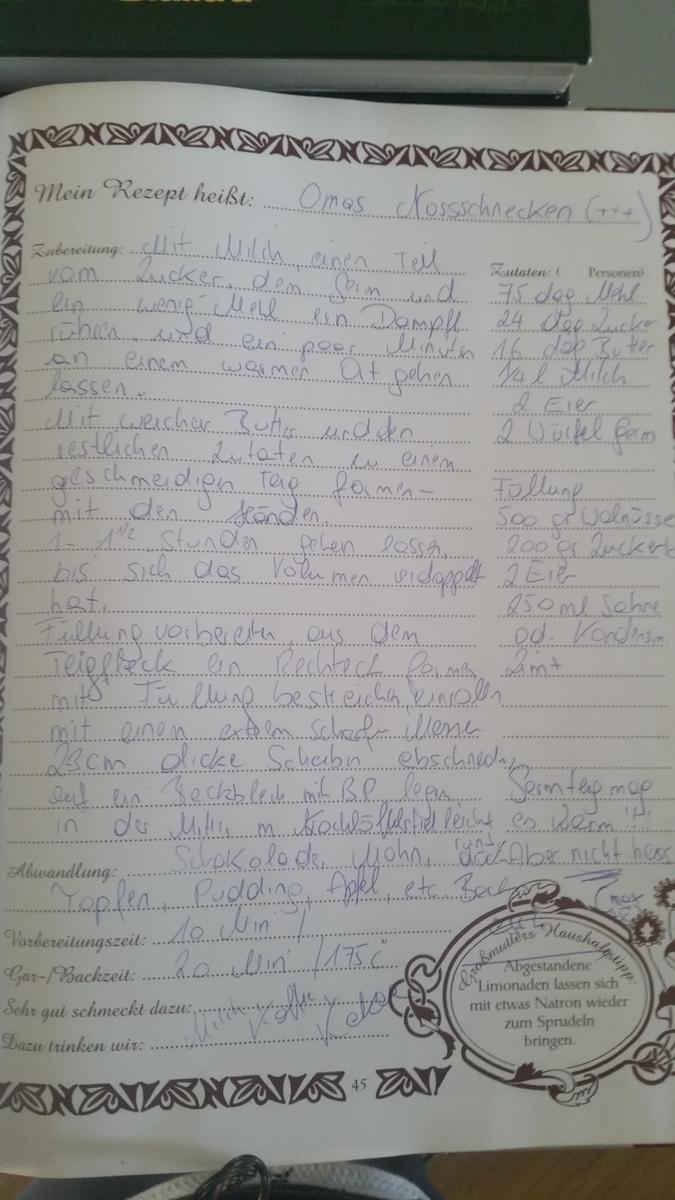 Mein Rezept heißt: Omas Nossschnecken (+++)
Zubereitung: Mit Milch, einen Teil
vom Zucker, dem Germ und
ein wenig Mehl ein Dampfl
rühren und ein paar Minuten
an einem warmen Ort gehen
lassen.
Mit weicher Butter und den
restlichen Zutaten zu einem
geschmeidigen Teig formen-
mit den Händen.
1- 1 1/2 Stunden gehen lassen,
bis sich das Volumen verdoppelt
hat.
Füllung vorbereiten, aus dem
Teigfleck ein Rechteck formen
mit Füllung bestreichen, einrollen
mit einen extrem scharfen Messer
23cm dicke Scheiben abschneiden
auf ein Backblech mit BP legen
in der Mitte m Kochlöffelstiel leicht
Zutaten: ( Personen)
75 dag Mehl
24 dag Zucker
16 dag Butter
1/4 l Milch
2 Eier
2 Würfel Germ
Füllung
500 gr Walnüsse
200 gr
2 Eier
250 ml Sahne
od.
Zimt
Germteig mag
es warm!!!
Aber nicht heiss
max
Abwandlung: Schokolade, Mohn,
Topfen, Pudding, Apfel, etc.
Vorbereitungszeit: 10 Min /
Gar-/Backzeit: 20 Min /175 C°
Sehr gut schmeckt dazu:
Dazu trinken wir: Milch, Kaffee, Kakao
Großmutters Haushaltstipp:
Abgestandene
Limonaden lassen sich
mit etwas Natron wieder
zum Sprudeln
bringen.
45